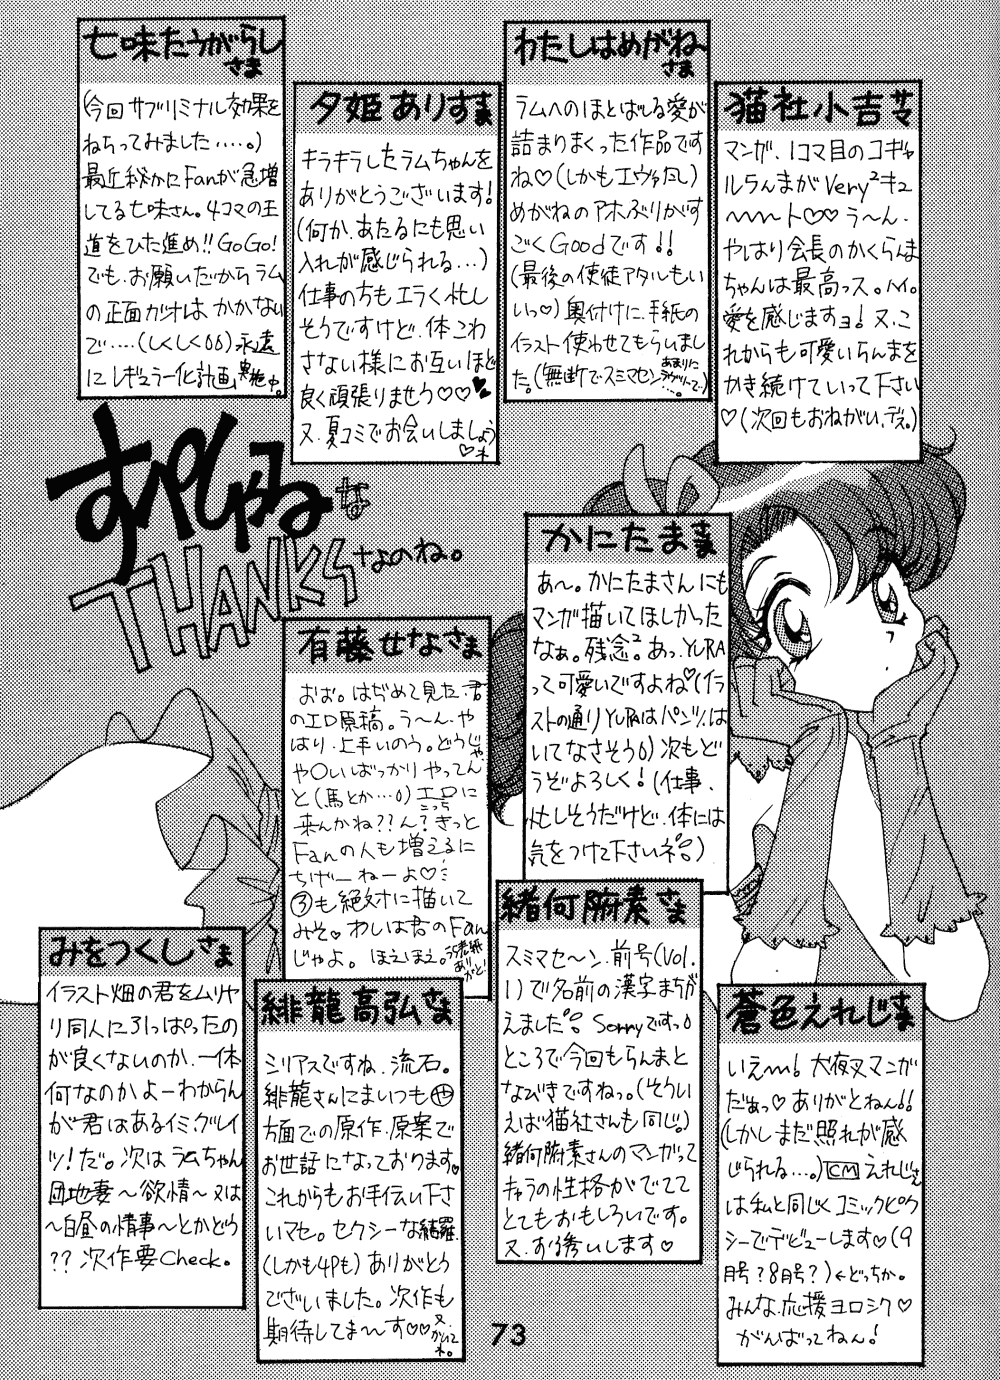 七味たうがらしさま
(今回サブリミナル効果を
ねらってみました……。)
最近秘かにFanが急増
してる七味さん。4コマの王
道をひた進め!!GoGo!
でも、お願いだからラム
の正面ガオは、かかない
で……(しくしく)永遠
にレギュラー化計画、実施中。
夕姫ありすさま
キラキラしたラムちゃんを
ありがとうございます!
(何か、あたるにも思い
入れが感じられる…)
仕事の方もエラく忙し
そうですけど、体こわ
さない様にお互いほど
良く頑張りませう♡♡
又、夏コミでお会いしましょうネ♡
わたしはめがねさま
ラムへのほとばしる愛が
詰まりまくった作品です
ね♡(しかもエヴァだし)
めがねのアホぶりがす
ごくGoodです!!
(最後の使徒アタルもい
いっ♡)奥付けに、手紙の
イラスト使わせてもらいまし
た。(無断でスミマセン
猫社小吉サマ
マンガ、1コマ目のコギャ
ルらんまがVery²キュ
〜〜ト♡♡う〜ん、
やはり会長のかくらんま
ちゃんは最高っス。ハイ。
愛を感じますヨ!又、こ
れからも可愛いらんまを
かき続けていって下さい
♡(次回もおねがい、デス。)
すぺしゃるな
THANKSなのね。
かにたまさま
あ〜。かにたまさんにも
マンガ描いてほしかった
なぁ。残念²。あっ、YURA
って可愛いですよね♡(イラ
ストの通りYURAはパンツ、は
いてなさそう)次もど
うぞよろしく!(仕事、
忙しそうだけど、体には
気をつけて下さいネ。)
有藤せなさま
おお。はぢめて見た、君
のエロ原稿。う〜ん、や
はり、上手いのう。どうじゃ
や〇いばっかりやってん
と(馬とか…)エロに
こっち
来んかね??ん?きっと
Fanの人も増えるに
ちげーねーよ♡
③も絶対に描いて
みそ♡わしは君のFan
じゃよ。ほえほえ。
緒何腑素さま
スミマセ〜ン、前号(Vol.
1)で名前の漢字まちが
えました。Sorryですっ
ところで今回もらんまと
なびきですね。(そうい
えば猫社さんも同じ。)
緒何腑素さんのマンガって
キャラの性格がでてて
とてもおもしろいです。
又、お誘いします♡
みをつくしさま
イラスト畑の君をムリヤ
リ同人に引っぱったの
が良くないのか、一体
何なのかよーわからん
が君はあるイミ、グレイ
ツ!だ。次はラムちゃん
団地妻〜欲情〜又は
〜白昼の情事〜とかどう
??次作要Check。
緋龍高弘さま
シリアスですね、流石。
緋龍さんにはいつも㋳
方面での原作、原案で
お世話になっております。
これからもお手伝い下さ
いマセ。セクシーな綺羅
(しかも4Pも)ありがとう
ございました。次作も
期待してま〜す♡♡又、かいてネ。
蒼色えれじさま
いえ〜!犬夜叉マンガ
だぁっ♡ありがとねん!!
(しかしまだ照れが感
じられる…。)CMえれじさん
は私と同じくコミックピク
シーでデビューします♡(9
月号?8月号?)←どっちか。
みんな、応援ヨロシク♡
がんばってねん!
73